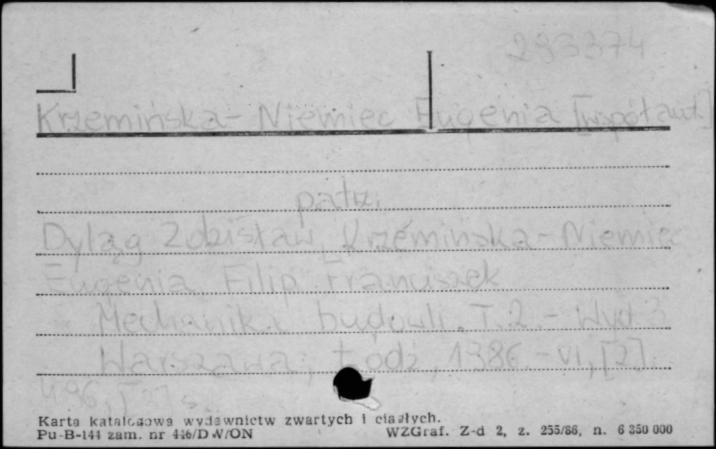 293374
Krzemińska-Niemiec Eugenia [współaut.]
patrz
Dyląg Zdzisław, Krzemińska-Niemiec
Eugenia, Filip Franciszek
Mechanika budowli. T. 2. - Wyd 3
Warszawa; Łódź, 1986. - VI, [2],
496, s.
Karta katalogowa wydawnictw zwartych i ciągłych.
Pu-B-144 zam. nr 446/DW/ON WZGraf. Z-d 2, z. 255/86, n. 6 350 000